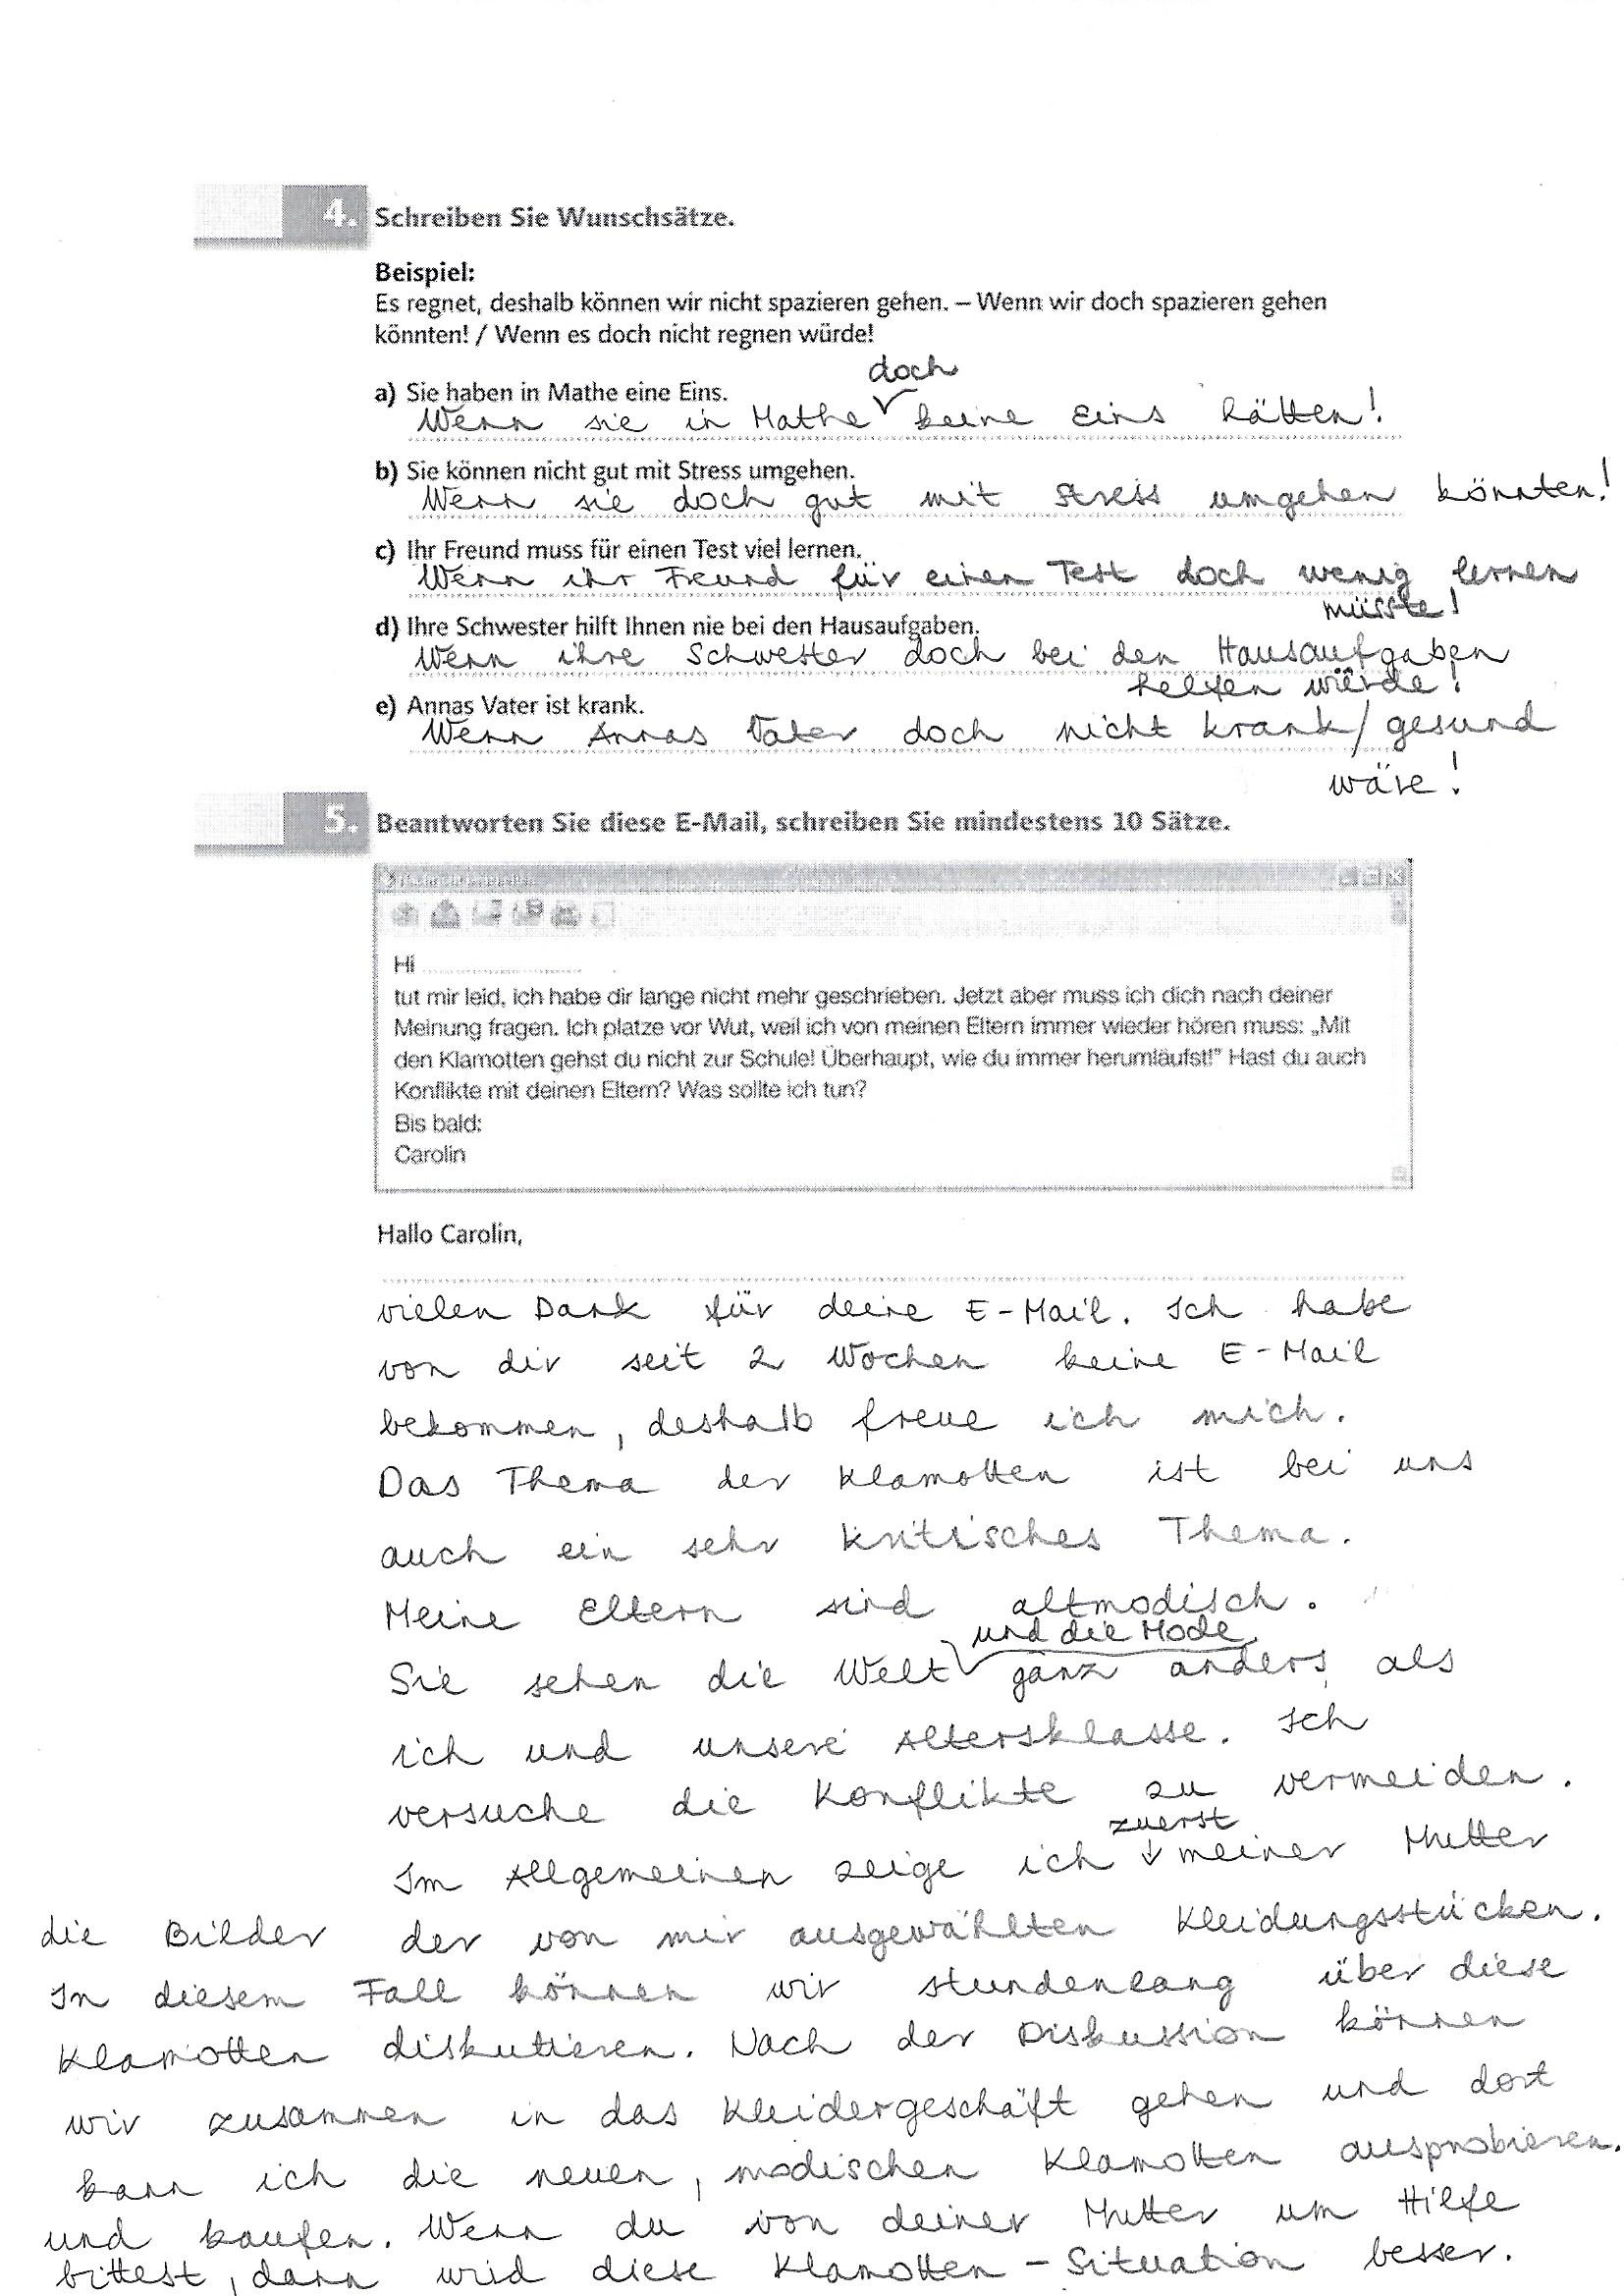 4. Schreiben Sie Wunschsätze.
Beispiel:
Es regnet, deshalb können wir nicht spazieren gehen. – Wenn wir doch spazieren gehen
könnten! / Wenn es doch nicht regnen würde!
a) Sie haben in Mathe eine Eins.
doch
Wenn sie in Mathe keine Eins hätten!
b) Sie können nicht gut mit Stress umgehen.
Wenn sie doch gut mit Stress umgehen könnten!
c) Ihr Freund muss für einen Test viel lernen.
Wenn ihr Freund für einen Test doch wenig lernen
müsste!
d) Ihre Schwester hilft Ihnen nie bei den Hausaufgaben.
Wenn ihre Schwester doch bei den Hausaufgaben
helfen würde!
e) Annas Vater ist krank.
Wenn Annas Vater doch nicht krank/gesund
wäre!
5. Beantworten Sie diese E-Mail, schreiben Sie mindestens 10 Sätze.
Hi
tut mir leid, ich habe dir lange nicht mehr geschrieben. Jetzt aber muss ich dich nach deiner
Meinung fragen. Ich platze vor Wut, weil ich von meinen Eltern immer wieder hören muss: „Mit
den Klamotten gehst du nicht zur Schule! Überhaupt, wie du immer herumläufst!" Hast du auch
Konflikte mit deinen Eltern? Was sollte ich tun?
Bis bald:
Carolin
Hallo Carolin,
vielen Dank für deine E-Mail. Ich habe
von dir seit 2 Wochen keine E-Mail
bekommen, deshalb freue ich mich.
Das Thema der Klamotten ist bei uns
auch ein sehr kritisches Thema.
Meine Eltern sind altmodisch.
und die Mode
Sie sehen die Welt ganz anders, als
ich und unsere Altersklasse. Ich
versuche die Konflikte zu vermeiden.
zuerst
Im Allgemeinen zeige ich meiner Mutter
die Bilder der von mir ausgewählten Kleidungsstücken.
In diesem Fall können wir stundenlang über diese
Klamotten diskutieren. Nach der Diskussion können
wir zusammen in das Kleidergeschäft gehen und dort
kann ich die neuen, modischen Klamotten ausprobieren.
und kaufen. Wenn du von deiner Mutter um Hilfe
bittest, dann wird diese Klamotten-Situation besser.